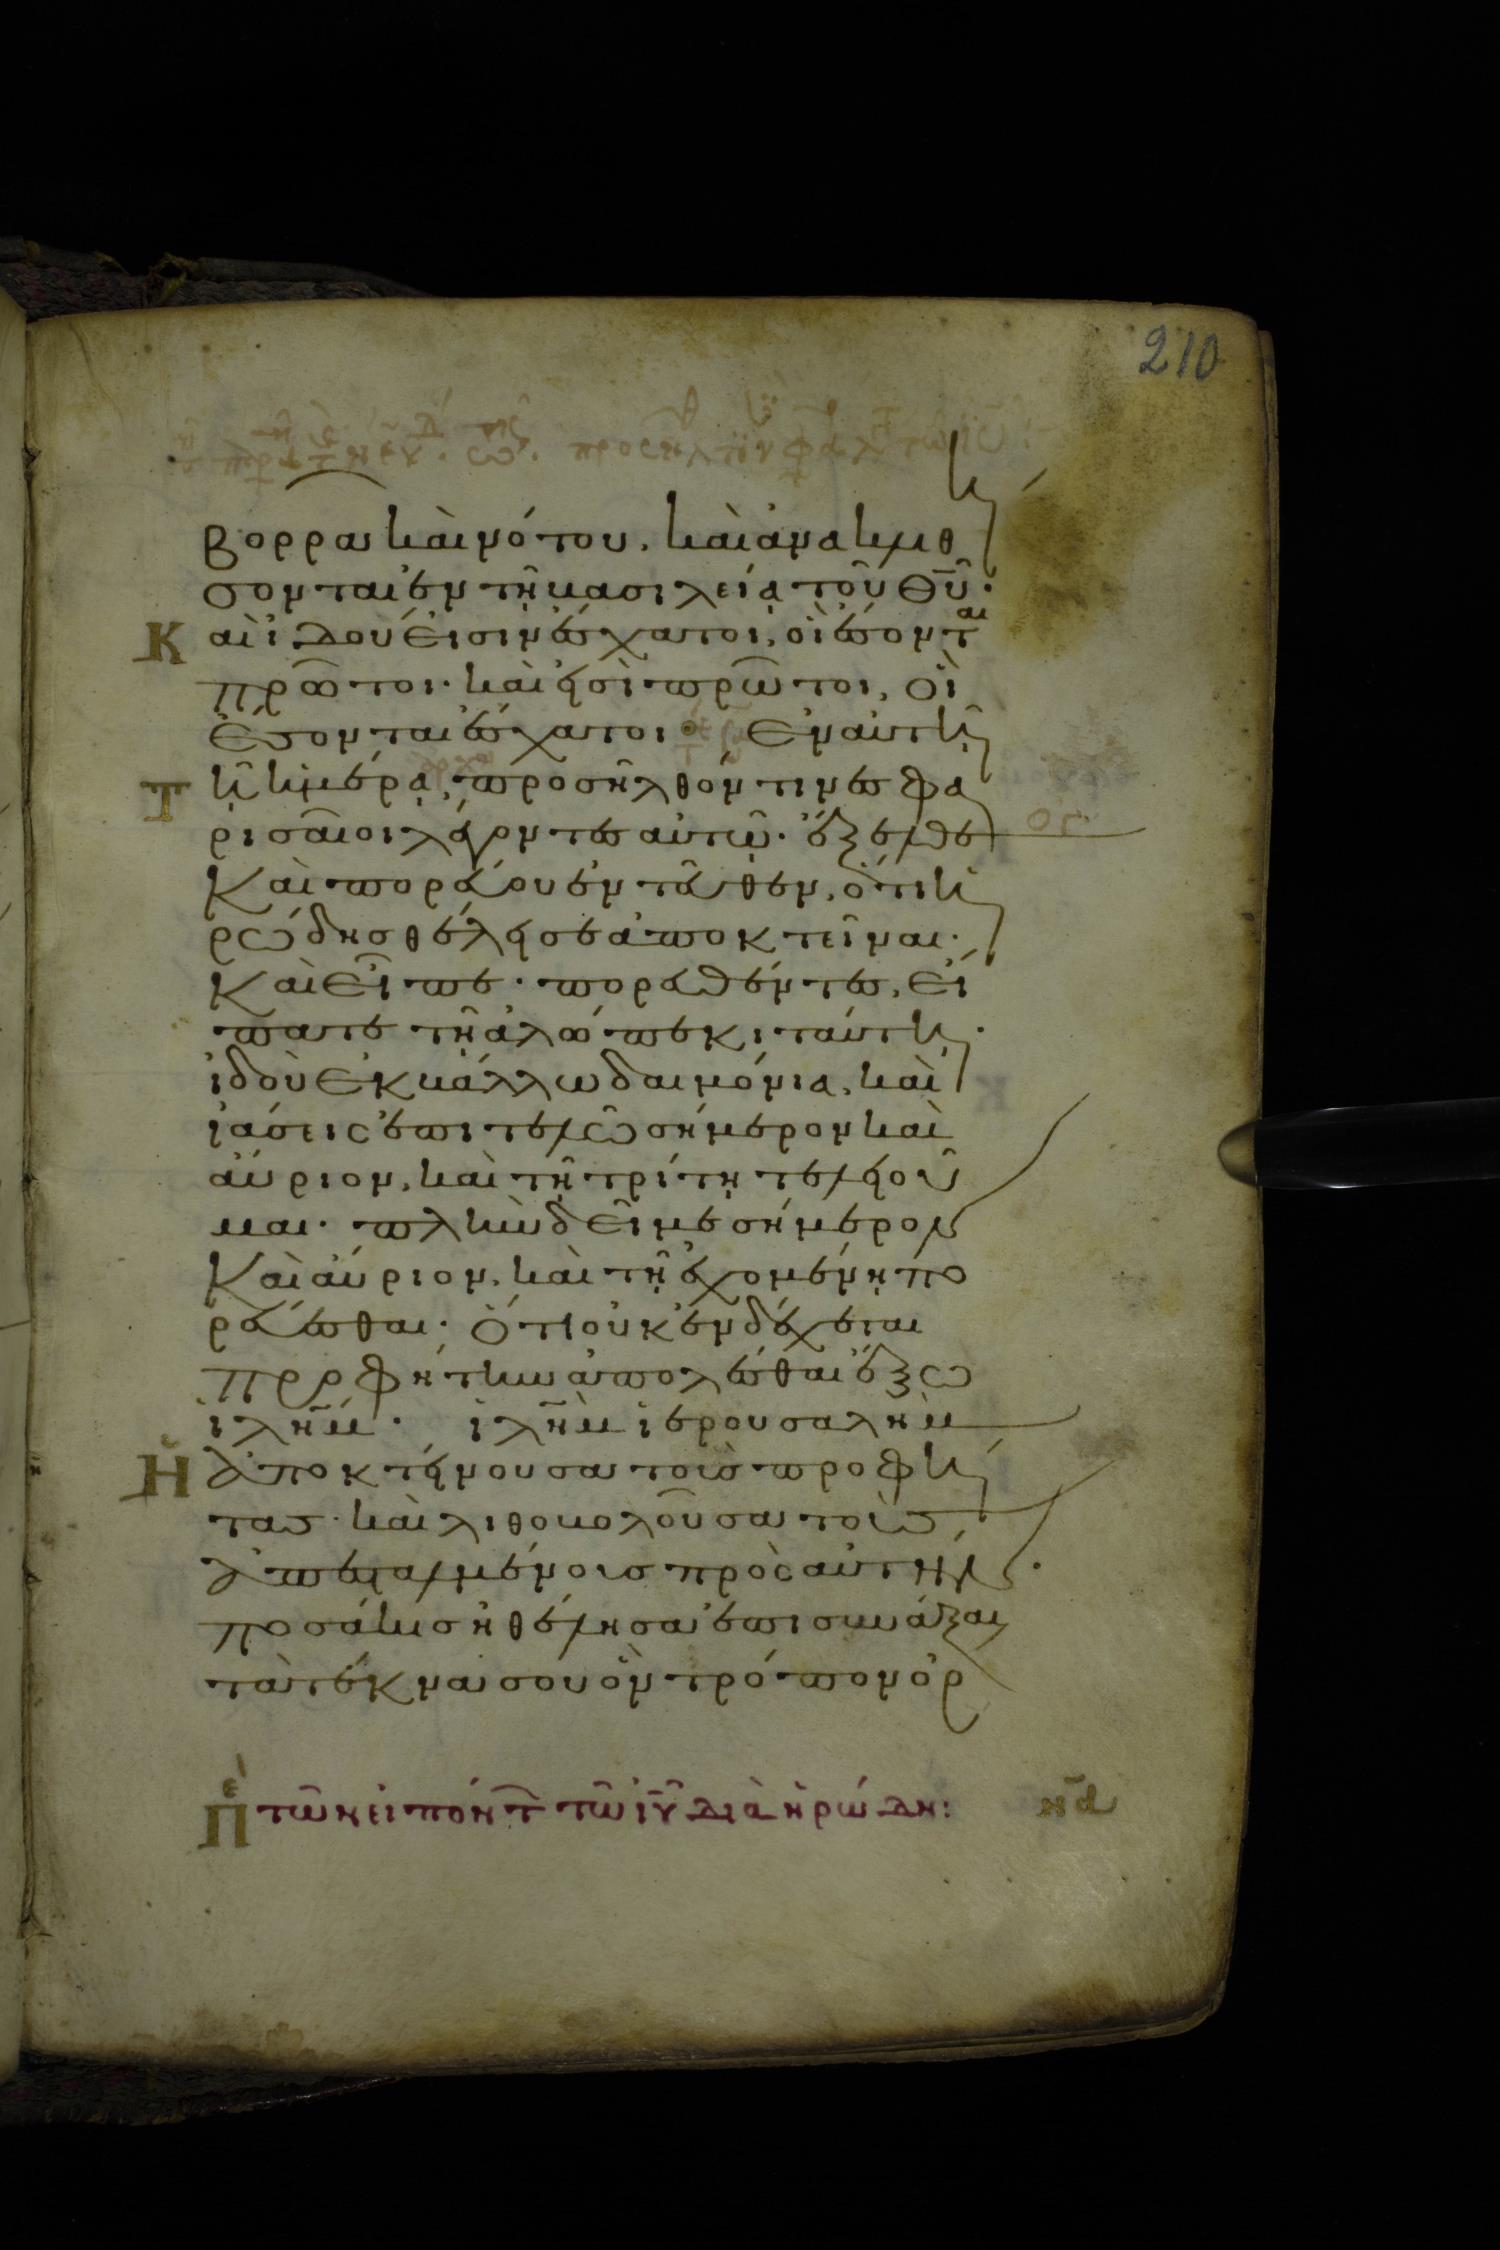 210
βορρα καὶ νότου, καὶ ἀνακληθή
σονται ἐν τῇ βασιλείᾳ τοῦ θυ.
Καὶ ἰδοὺ εἰσὶν ἔσχατοι, οἳ ἔσονται
πρῶτοι· καὶ εἰσὶ πρῶτοι, οἳ
ἔσονται ἔσχατοι. Ἐν αὐτῇ
Τῇ ἡμέρᾳ, προσῆλθόν τινες φα
ρισαῖοι λέγοντες αὐτῷ· ἔξελθε
καὶ πορεύου ἐντεῦθεν, ὅτι ἡ
ρώδης θέλει σε ἀποκτεῖναι.
καὶ εἶπε· πορευθέντες, εἴ
πατε τῇ ἀλώπεκι ταύτῃ.
ἰδοὺ ἐκβάλλω δαιμόνια, καὶ
ἰάσεις ἐπιτελῶ σήμερον καὶ
αὔριον, καὶ τῇ τρίτῃ τελειοῦ
μαι. πλὴν δεῖ με σήμερον
καὶ αὔριον, καὶ τῇ ἐχομένῃ πο
ρεύεσθαι· ὅτι οὐκ ἐνδέχεται
προφήτην ἀπολέσθαι ἔξω
ἱλημ. ἱλημ ἱερουσαλὴμ
Ἡ ἀποκτείνουσα τοὺς προφή
τας· καὶ λιθοβολοῦσα τοὺς
ἀπεσταλμένους πρὸς αὐτήν.
ποσάκις ἠθέλησα ἐπισυνάξαι
τὰ τέκνα σου ὃν τρόπον ὄρ
Πὲ τῶν εἰπόντ τῶ ιυ διὰ ἡρώδη: να